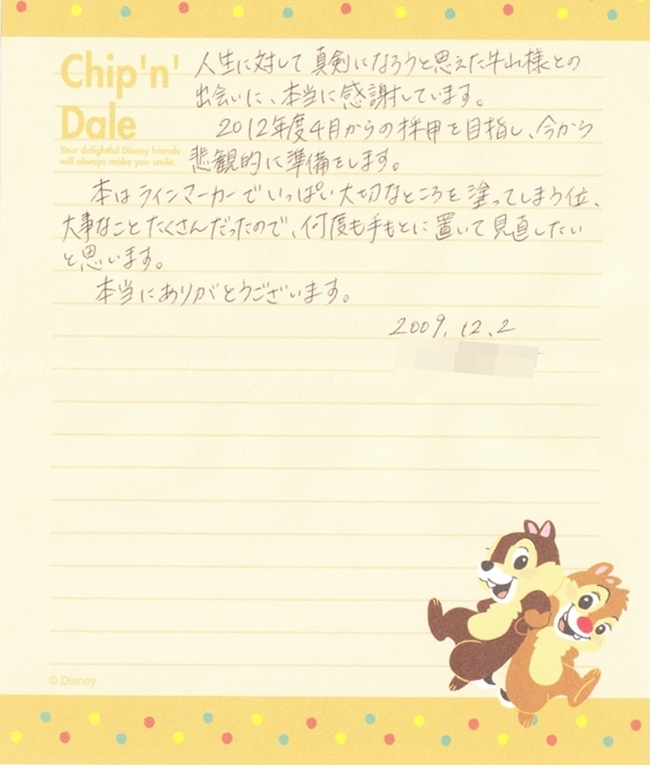 Chip'n'
Dale
Your delightful Disney friends
will always make you smile.
人生に対して真剣になろうと思えた牛山様との
出会いに、本当に感謝しています。
2012年度4月からの採用を目指し、今から
悲観的に準備をします。
本はラインマーカーでいっぱい大切なところを塗ってしまう位、
大事なことたくさんだったので、何度も手もとに置いて見直したい
と思います。
本当にありがとうございます。
2009.12.2
© Disney